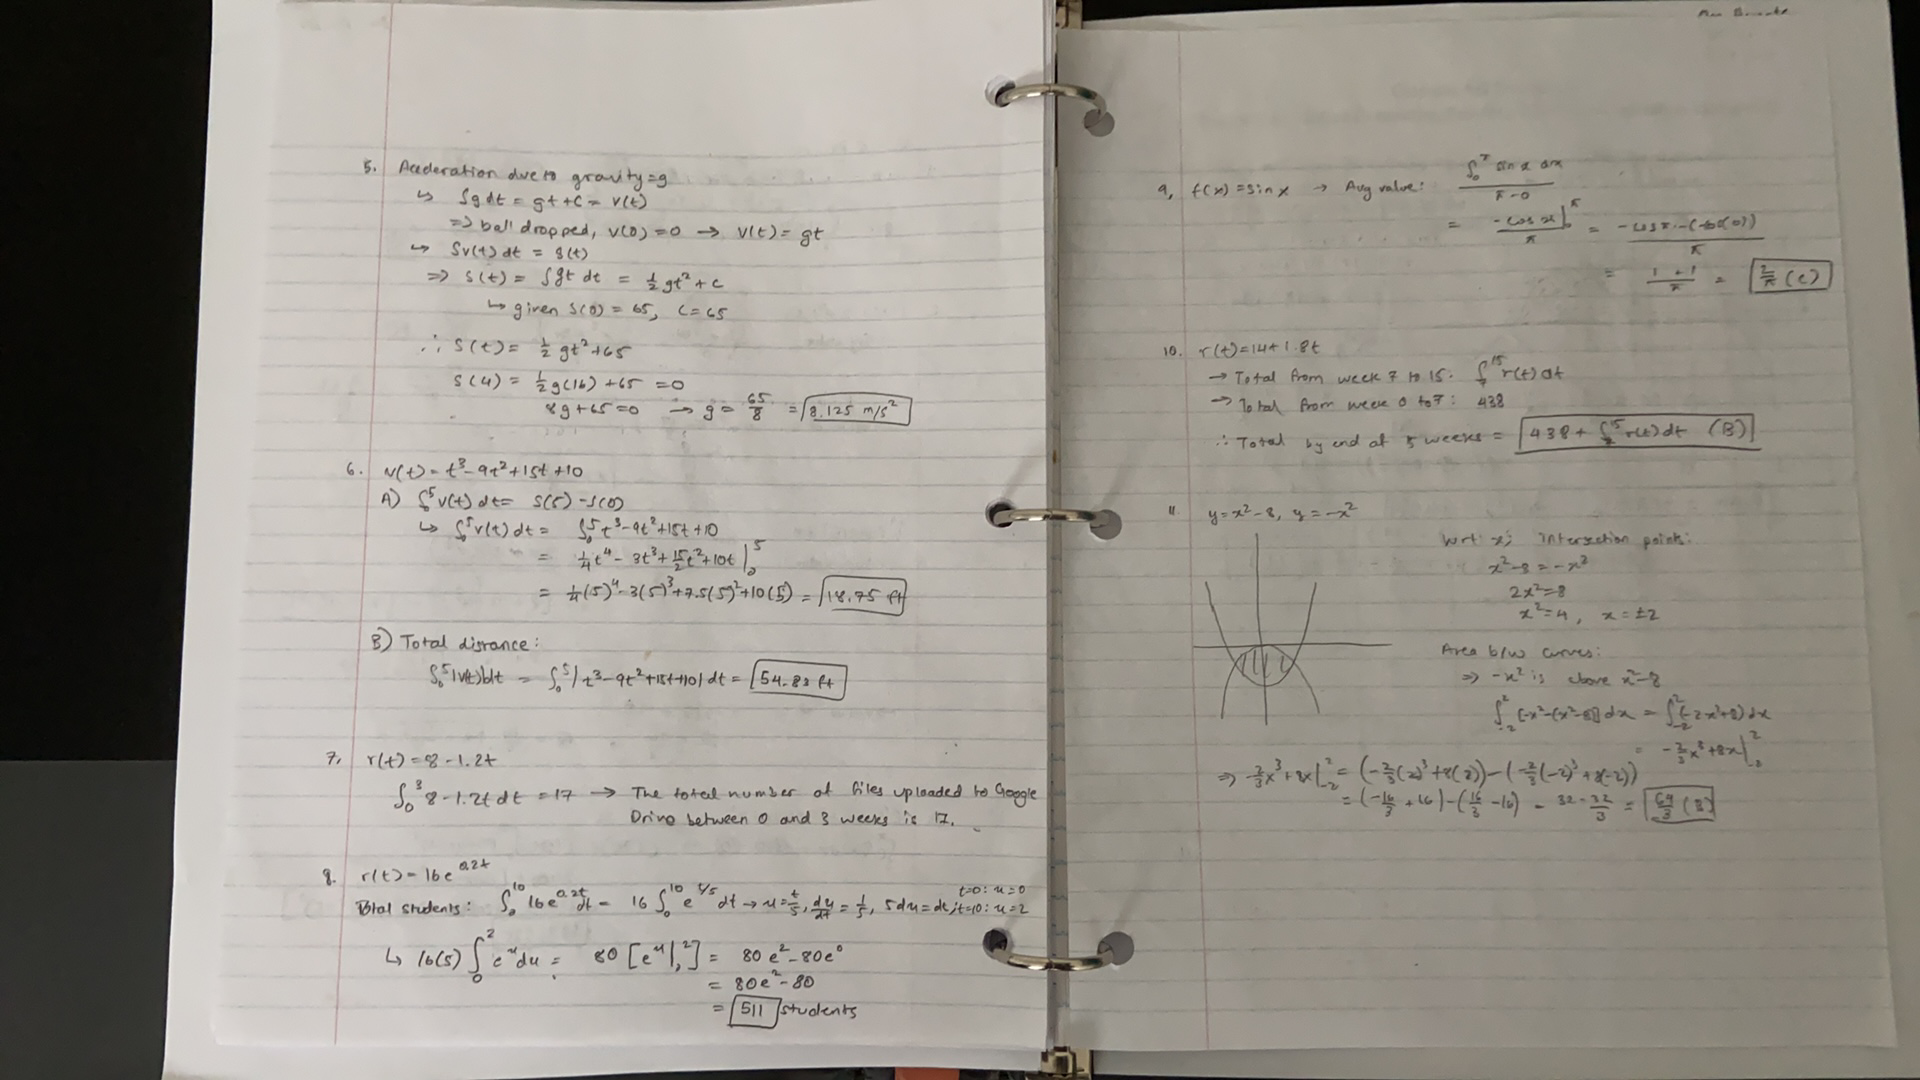 5. Acceleration due to gravity = g
↳ ∫g dt = gt + C = v(t)
=> ball dropped, v(0) = 0 → v(t) = gt
↳ ∫v(t) dt = s(t)
=> s(t) = ∫gt dt = 1/2 gt² + C
↳ given s(0) = 65, C = 65
∴ s(t) = 1/2 gt² + 65
s(4) = 1/2 g(16) + 65 = 0
8g + 65 = 0 → g = 65/8 = 8.125 m/s²
6. v(t) = t³ - 9t² + 15t + 10
A) ∫₀⁵ v(t) dt = s(5) - s(0)
↳ ∫₀⁵ v(t) dt = ∫₀⁵ t³ - 9t² + 15t + 10
= 1/4 t⁴ - 3t³ + 15/2 t² + 10t |₀⁵
= 1/4(5)⁴ - 3(5)³ + 7.5(5)² + 10(5) = 18.75 ft
B) Total distance:
∫₀⁵ |v(t)| dt = ∫₀⁵ |t³ - 9t² + 15t + 10| dt = 54.83 ft
7. r(t) = 8 - 1.2t
∫₀³ 8 - 1.2t dt = 17 → The total number of files uploaded to Google
Drive between 0 and 3 weeks is 17.
8. r(t) = 16e^0.2t
t=0: u=0
Total students: ∫₀¹⁰ 16e^0.2t dt = 16 ∫₀¹⁰ e^t/5 dt → u = t/5, du/dt = 1/5, 5du = dt, t=10: u=2
↳ 16(5) ∫₀² e^u du = 80 [e^u |₀²] = 80e² - 80e⁰
= 80e² - 80
= 511 students
9. f(x) = sin x → Avg value: ∫₀^π sin x dx / π - 0
= -cos x |₀^π / π = -cos π - (-cos(0)) / π
= 1 + 1 / π = 2/π (C)
10. r(t) = 14 + 1.8t
→ Total from week 7 to 15: ∫₇¹⁵ r(t) dt
→ Total from week 0 to 7: 438
∴ Total by end of 15 weeks = 438 + ∫₇¹⁵ r(t) dt (B)
11. y = x² - 8, y = -x²
Wrt x; intersection points:
x² - 8 = -x²
2x² = 8
x² = 4, x = ±2
Area b/w curves:
=> -x² is above x² - 8
∫₋₂² [-x² - (x² - 8)] dx = ∫₋₂² (-2x² + 8) dx
= -2/3 x³ + 8x |₋₂²
=> -2/3 x³ + 8x |₋₂² = (-2/3(2)³ + 8(2)) - (-2/3(-2)³ + 8(-2))
= (-16/3 + 16) - (16/3 - 16) = 32 - 32/3 = 64/3 (B)